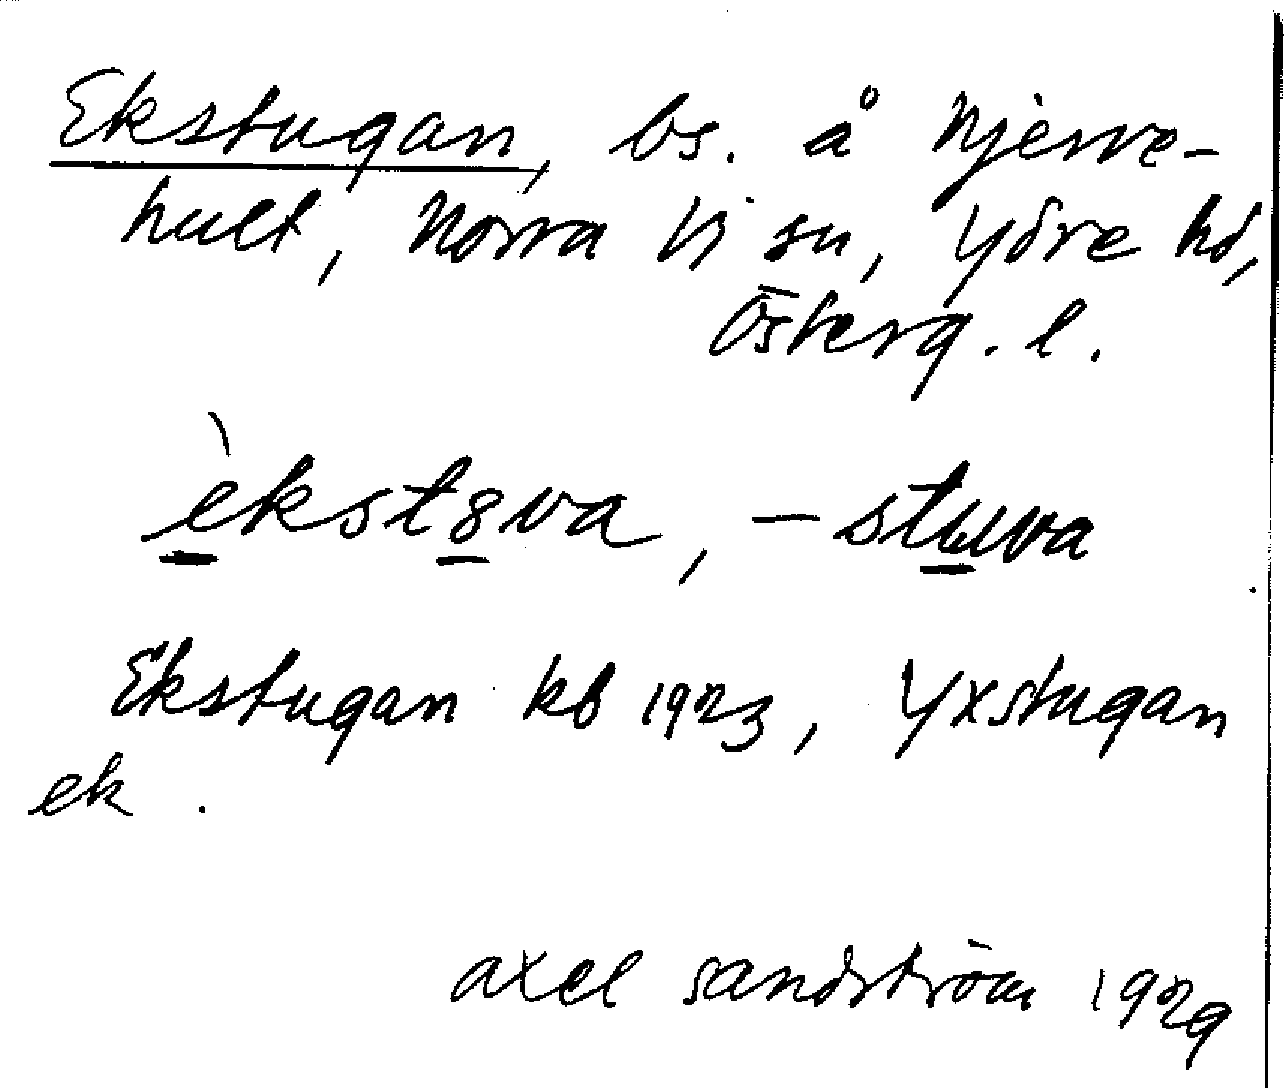 Ekstugan, bs. å Njerve-
hult, Norra Vi sn, Ydre hd,
Österg. l.
èkst8va, -stuva
Ekstugan kb 1923, Yxstugan
ek.
Axel Sandström 1929